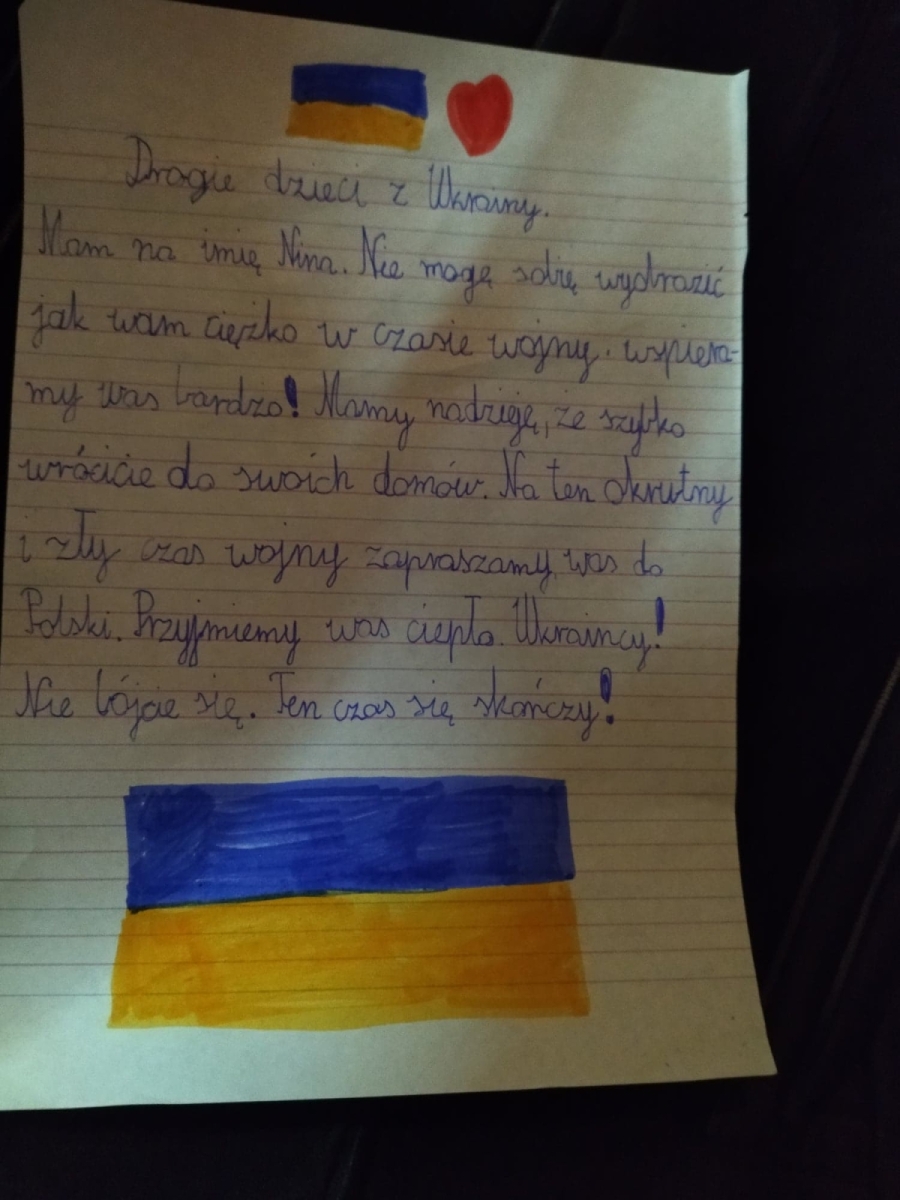 Drogie dzieci z Ukrainy.
Mam na imię Nina. Nie mogę sobię wyobrazić
jak wam ciężko w czasie wojny. wspiera-
my was bardzo! Mamy nadzieję, że szybko
wrócicie do swoich domów. Na ten okrutny
i zły czas wojny zapraszamy was do
Polski. Przyjmiemy was ciepło. Ukraincy!
Nie bójcie się. Ten czas się skończy!